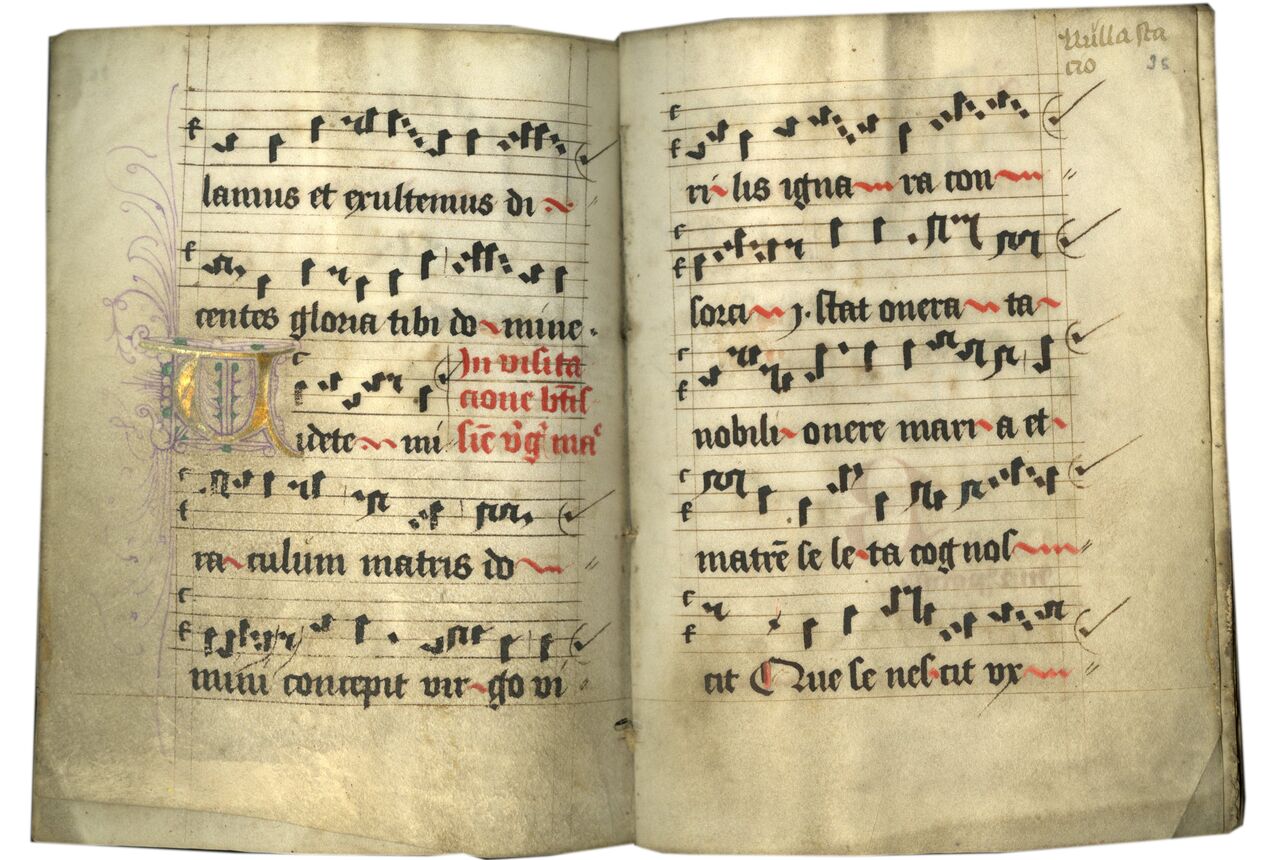 lamus et exultemus di
centes gloria tibi do mine .
In visita
cione btissi
Videte mi
sie v'g' ma
ra culum matris do
mini concepit vir go vi
Nulla sta
cio 35
ri lis igna ra con
sorci j . stat onera ta
nobili onere mari a et
matrē se le ta cog nos
cit Que se nescit vx